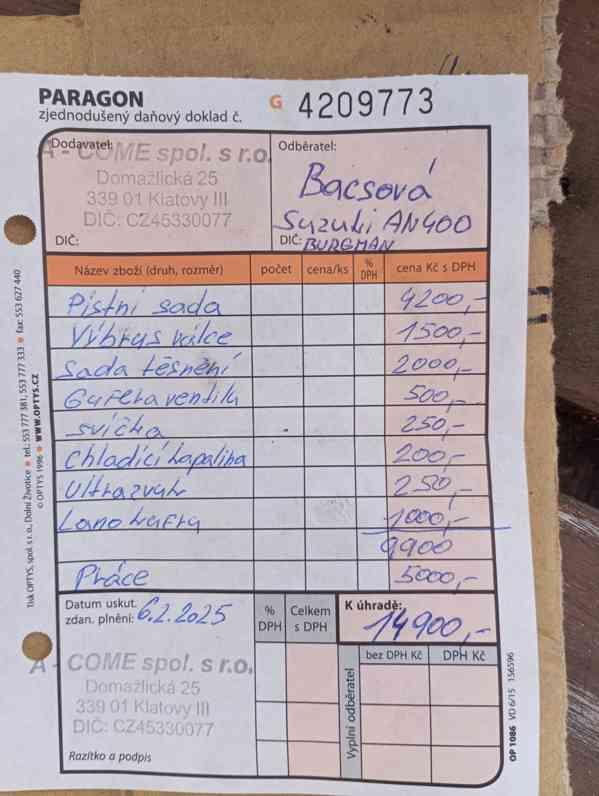 PARAGON
zjednodušený daňový doklad č.
G 4209773
Dodavatel:
A - COME spol. s r.o.
Domažlická 25
339 01 Klatovy III
DIČ: CZ45330077
DIČ:
Odběratel:
Bacsová
Suzuki AN400
DIČ: BURGMAN
Název zboží (druh, rozměr) počet cena/ks % DPH cena Kč s DPH
Pístní sada 4200,-
Výbrus válce 1500,-
Sada těsnění 2000,-
Gufera ventilu 500,-
svíčka 250,-
Chladící kapalina 200,-
Ultrazvuk 250,-
Lano kafra 1000,-
9900
Práce 5000,-
Datum uskut.
zdan. plnění: 6.2.2025
% DPH
Celkem s DPH
K úhradě:
14900,-
A - COME spol. s r.o.
Domažlická 25
339 01 Klatovy III
DIČ: CZ45330077
Razítko a podpis
Vyplní odběratel
bez DPH Kč DPH Kč
Tisk OPTYS, spol. s r. o., Dolní Životice • tel.: 553 777 381, 553 777 333 • fax: 553 627 440
© OPTYS 1996 • WWW.OPTYS.CZ
OP 1086 VD 6/15 156596